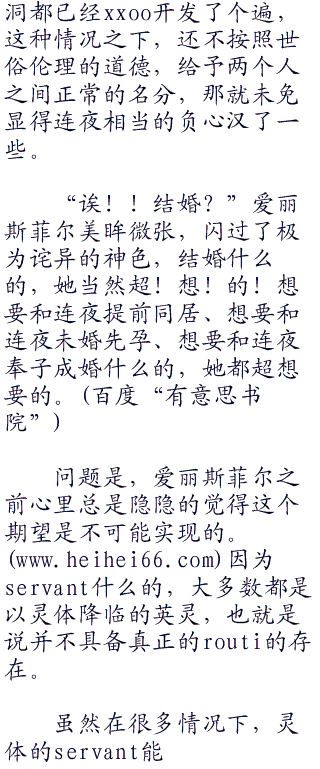 洞都已经xxoo开发了个遍，
这种情况之下，还不按照世
俗伦理的道德，给予两个人
之间正常的名分，那就未免
显得连夜相当的负心汉了一
些。
“诶！！结婚？”爱丽
斯菲尔美眸微张，闪过了极
为诧异的神色，结婚什么
的，她当然超！想！的！想
要和连夜提前同居、想要和
连夜未婚先孕、想要和连夜
奉子成婚什么的，她都超想
要的。(百度“有意思书
院”)
问题是，爱丽斯菲尔之
前心里总是隐隐的觉得这个
期望是不可能实现的。
(www.heihei66.com)因为
servant什么的，大多数都是
以灵体降临的英灵，也就是
说并不具备真正的routi的存
在。
虽然在很多情况下，灵
体的servant能